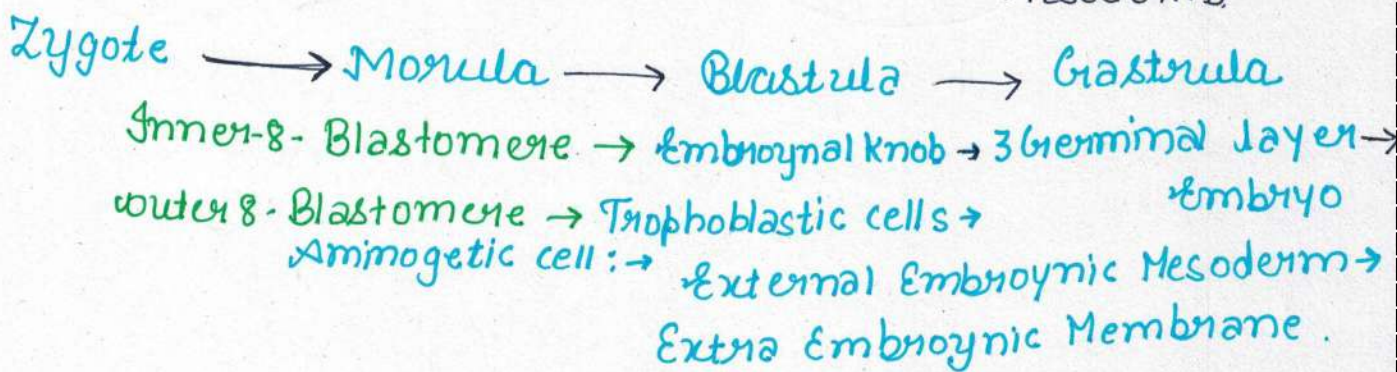 Zygote → Morula → Blastula → Gastrula
Inner-8-Blastomere → Embroynal knob → 3 Germinal layer →
Embryo
outer 8-Blastomere → Trophoblastic cells →
Amimogetic cell :→
External Embroynic Mesoderm →
Extra Embroynic Membrane.